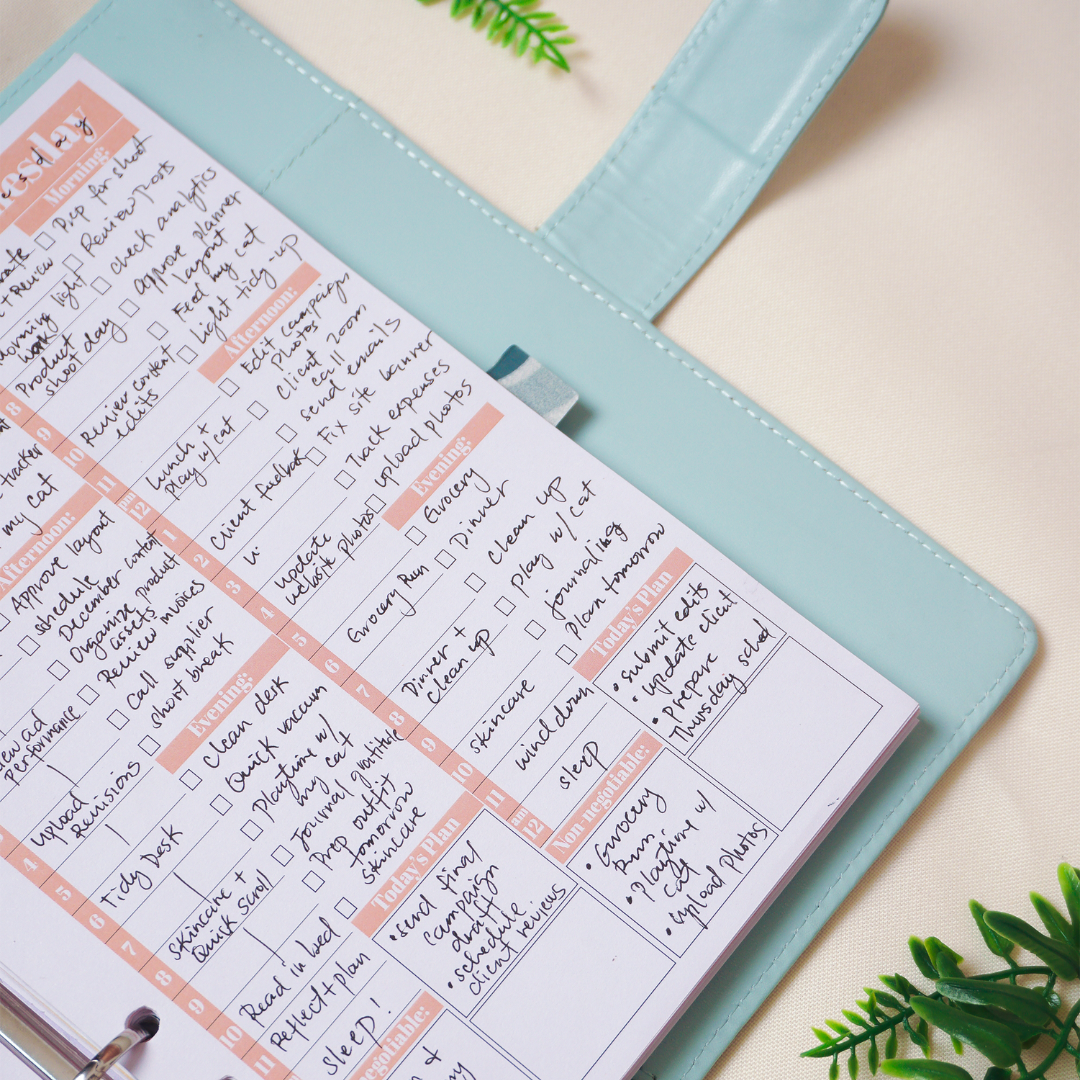 Morning:
Prep for shoot
Review posts
check analytics
approve planner
layout
Feed my cat
light tidy-up
+ Review
Morning light
work
Product
shoot day
Review content
edits
8
9
10
11
pm
12
1
2
3
4
5
6
7
8
9
10
11
am
12
Lunch +
play w/ cat
Client feedback
update
website photos
Grocery Run
Dinner +
clean up
skincare
wind down
sleep
Afternoon:
Edit campaign
photos
Client zoom
call
send emails
Fix site banner
Track expenses
upload photos
Evening:
Grocery
Dinner
clean up
play w/ cat
journaling
plan tomorrow
Today's Plan
• submit edits
• update client
• Prepare
Thursday sched
Non-negotiable:
• Grocery
Run
• Playtime w/
cat
• Upload Photos
tracker
my cat
Afternoon:
Approve layout
schedule
December content
Organize product
assets
Review invoices
Call supplier
short break
Evening:
Clean desk
Quick vacuum
Playtime w/
my cat
Journal gratitude
Prep outfit
tomorrow
skincare
Today's Plan
• send final
campaign
draft
• schedule
client reviews
performance
upload
Revisions
Tidy Desk
skincare +
Quick scroll
Read in bed
Reflect + plan
sleep!
4
5
6
7
8
9
10
11